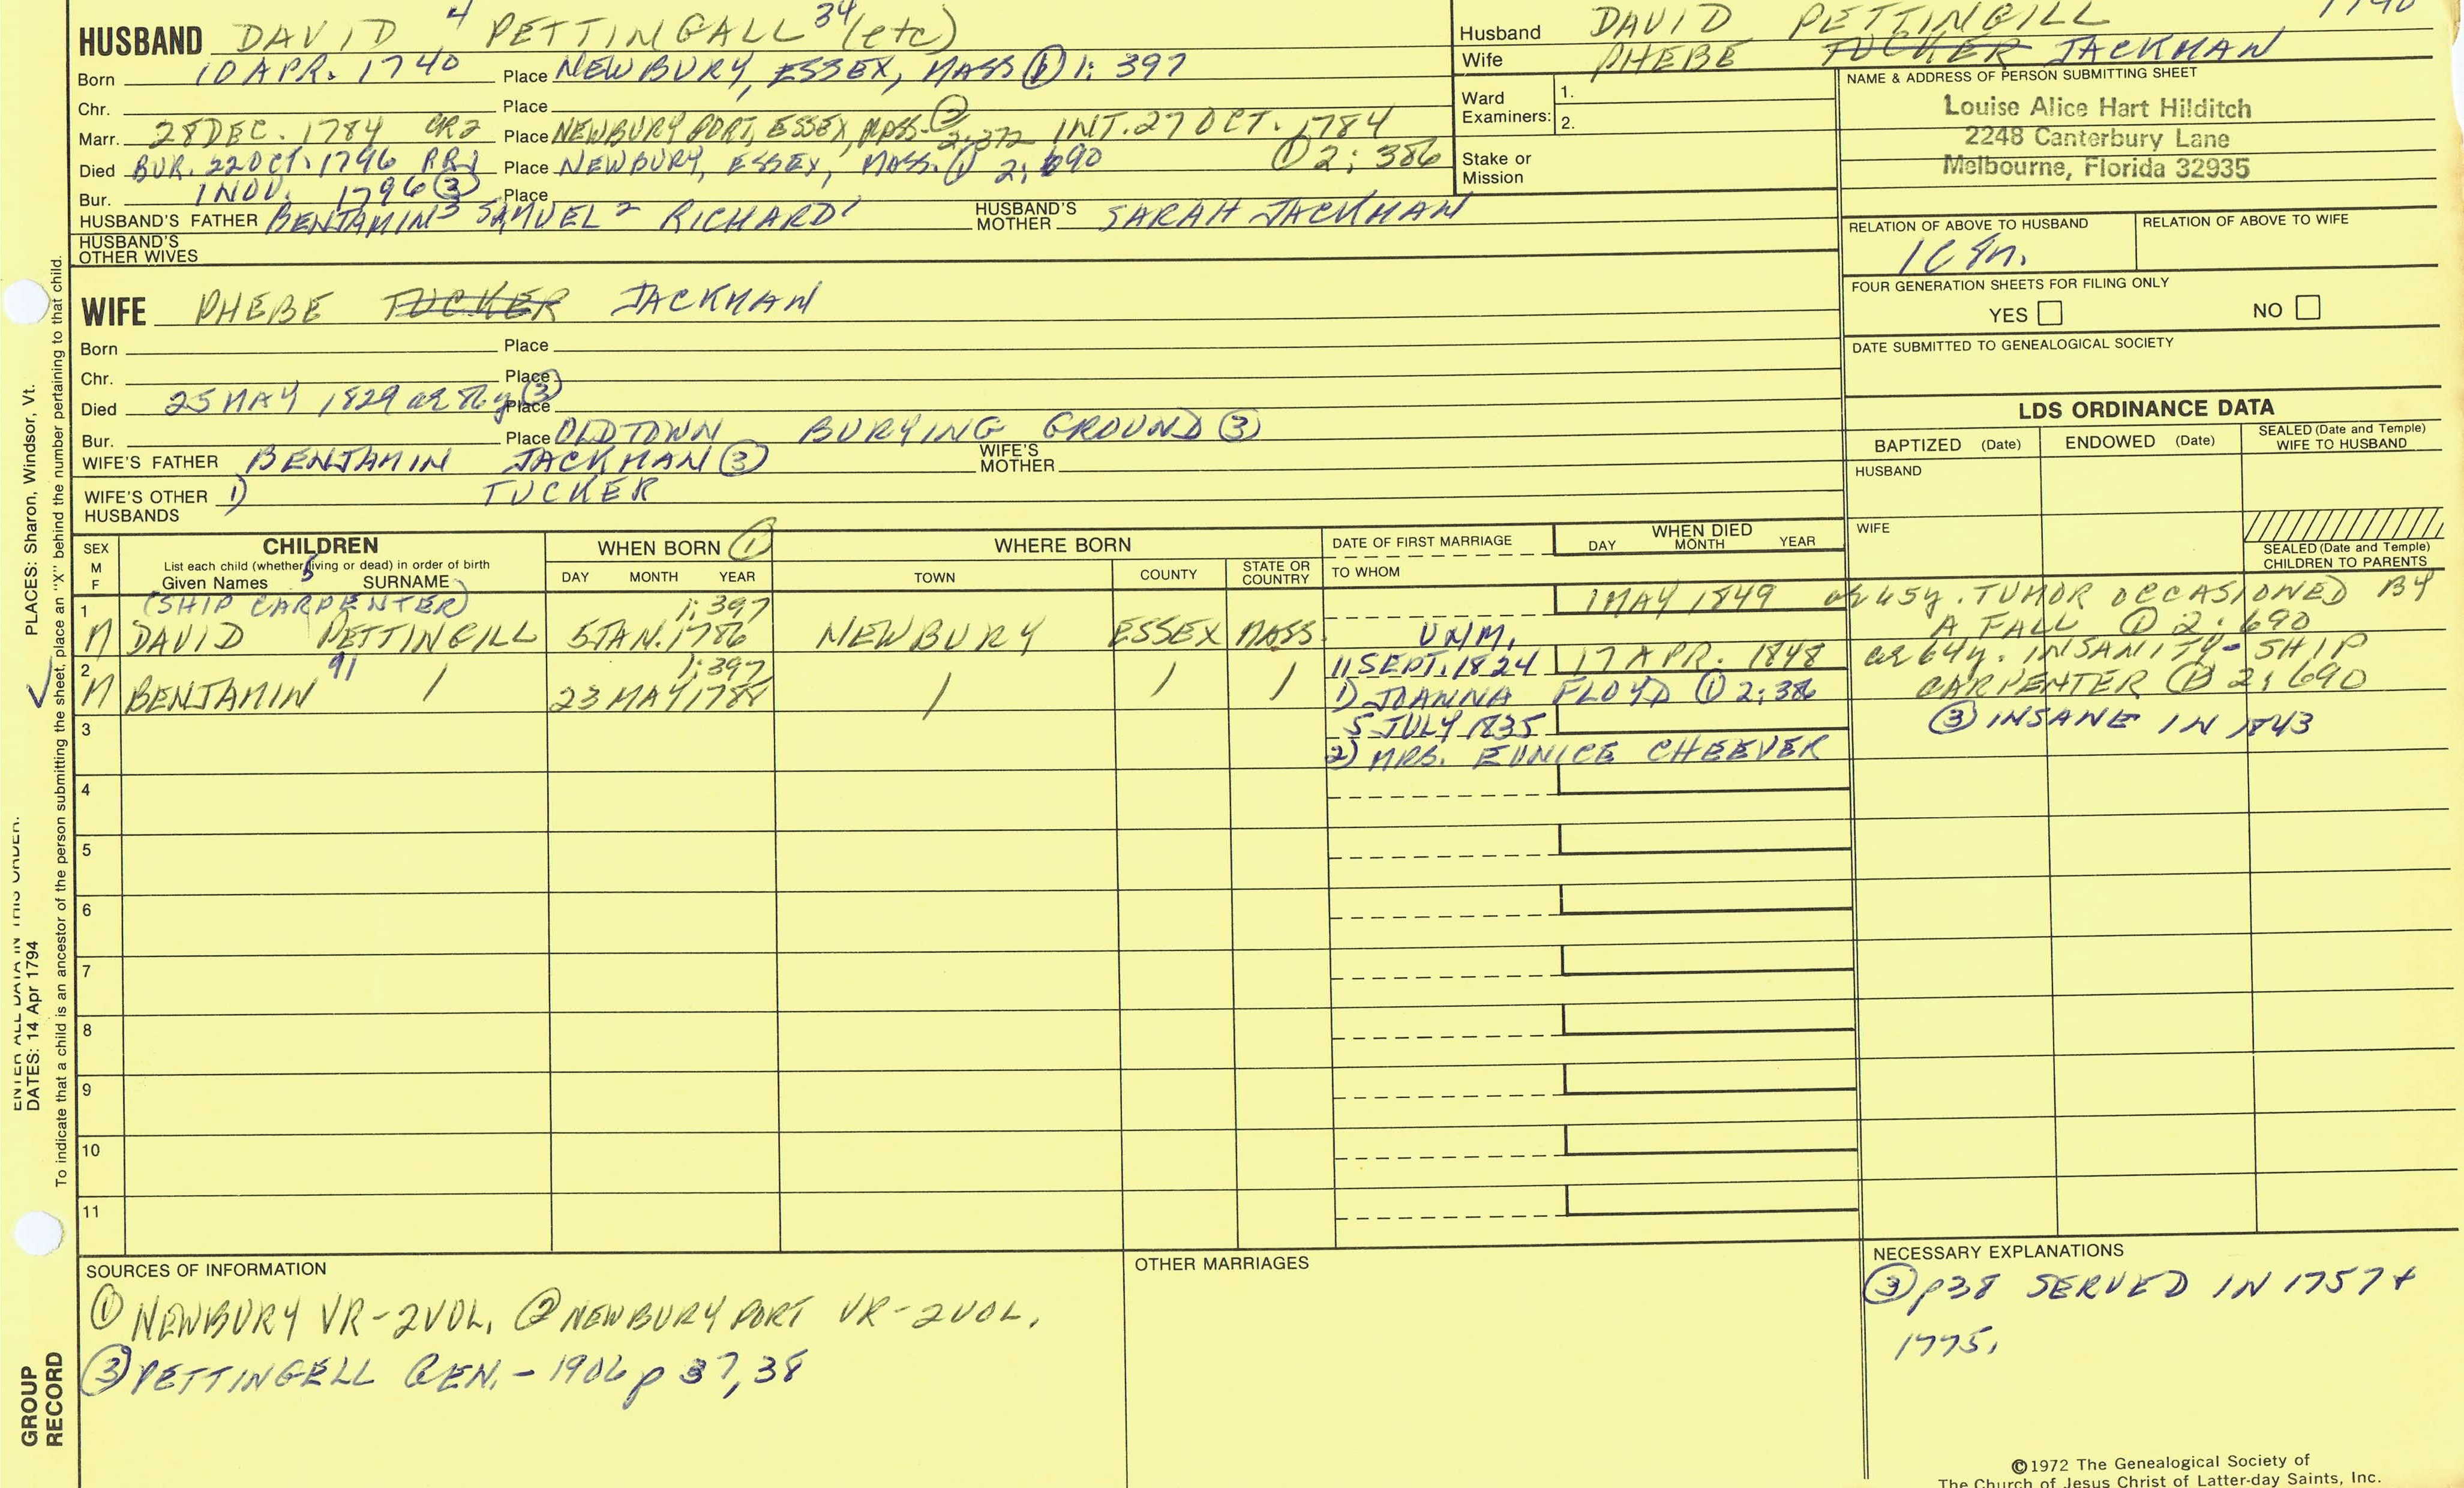 HUSBAND DAVID 4 PETTINGALL 34 (etc)
Born 10 APR. 1740 Place NEWBURY, ESSEX, MASS ① 1: 397
Chr. Place
Marr. 28 DEC. 1784 CR2 Place NEWBURY PORT, ESSEX, MASS. ② 2:372 INT. 27 OCT. 1784
Died BUR. 22 OCT. 1796 RR1 Place NEWBURY, ESSEX, MASS. ① 2: 690 ① 2: 386
Bur. 1 NOV. 1796 ③ Place
HUSBAND'S FATHER BENJAMIN 3 SAMUEL 2 RICHARD 1 HUSBAND'S MOTHER SARAH JACKMAN
HUSBAND'S OTHER WIVES
Husband DAVID PETTINGILL 1740
Wife PHEBE TUCKER JACKMAN
Ward Examiners: 1.
2.
Stake or Mission
NAME & ADDRESS OF PERSON SUBMITTING SHEET
Louise Alice Hart Hilditch
2248 Canterbury Lane
Melbourne, Florida 32935
RELATION OF ABOVE TO HUSBAND RELATION OF ABOVE TO WIFE
FOUR GENERATION SHEETS FOR FILING ONLY
YES NO
DATE SUBMITTED TO GENEALOGICAL SOCIETY
WIFE PHEBE TUCKER JACKMAN
Born Place
Chr. Place
Died 25 MAY 1829 ③ Place
Bur. Place OLDTOWN BURYING GROUND ③
WIFE'S FATHER BENJAMIN JACKMAN ③ WIFE'S MOTHER
WIFE'S OTHER HUSBANDS 1) TUCKER
LDS ORDINANCE DATA
BAPTIZED (Date) ENDOWED (Date) SEALED (Date and Temple) WIFE TO HUSBAND
HUSBAND
WIFE
SEALED (Date and Temple) CHILDREN TO PARENTS
SEX M F CHILDREN WHEN BORN ① WHERE BORN DATE OF FIRST MARRIAGE WHEN DIED
List each child (whether living or dead) in order of birth
Given Names 5 SURNAME DAY MONTH YEAR TOWN COUNTY STATE OR COUNTRY TO WHOM DAY MONTH YEAR
1 (SHIP CARPENTER) 1:397 1 MAY 1849 TUMOR OCCASIONED BY
M DAVID PETTINGILL 5 JAN. 1786 NEWBURY ESSEX MASS. UNM. A FALL ① 2: 690
2 91 1:397 11 SEPT. 1824 17 APR. 1848 ae 64y. INSANITY - SHIP
M BENJAMIN / 23 MAY / / / 1) JOANNA FLOYD ① 2:386 CARPENTER ① 2: 690
3 5 JULY 1835 ③ INSANE IN 1843
2) MRS. EUNICE CHEEVER
4
5
6
7
8
9
10
11
SOURCES OF INFORMATION
① NEWBURY VR-2VOL. ② NEWBURY PORT VR-2VOL.
③ PETTINGELL GEN. - 1906 p 37, 38
OTHER MARRIAGES
NECESSARY EXPLANATIONS
③ p38 SERVED IN 1757 +
1775.
©1972 The Genealogical Society of
The Church of Jesus Christ of Latter-day Saints, Inc.
ENTER ALL DATA IN THIS ORDER:
DATES: 14 Apr 1794 PLACES: Sharon, Windsor, Vt.
To indicate that a child is an ancestor of the person submitting the sheet, place an "X" behind the number pertaining to that child.
GROUP
RECORD